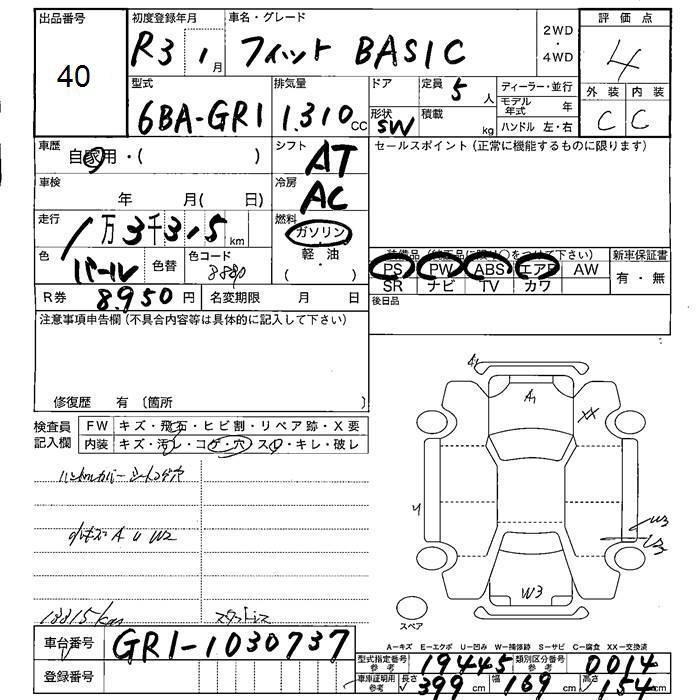 出品番号 初度登録年月 車名・グレード 評価点
40 R3 1月 フィット BASIC 2WD・4WD 4
型式 排気量 ドア 定員 5人 ディーラー・並行 外装 内装
6BA-GR1 1.310cc 形状 SW 積載 kg モデル年式 年 C C
ハンドル 左・右
車歴 自家用・( ) シフト AT セールスポイント(正常に機能するものに限ります)
車検 年 月( 日) 冷房 AC
走行 1万3千3.5km 燃料 ガソリン・軽油
色 パール 色替 色コード ( )
装備品(純正品に限り〇をつけて下さい) 新車保証書
PS PW ABS エアB AW 有・無
SR ナビ TV カワ
R券 8,950円 名変期限 月 日 後日品
注意事項申告欄(不具合内容等は具体的に記入して下さい)
修復歴 有〔箇所 〕
検査員記入欄 FW キズ・飛石・ヒビ割・リペア跡・X要
内装 キズ・汚レ・コゲ・穴・スレ・キレ・破レ
ハンドルカバー シートコゲ穴
小キズ A U W2
13315km スタッドレス
A1
A1
XX
W3
スペア
A-キズ E-エクボ U-凹み W-補修跡 S-サビ C-腐食 XX-交換済
車台番号 GR1-1030737
型式指定番号 参考 19445 類別区分番号 参考 0014
登録番号
車庫証明用 参考 長さ 399cm 幅 169cm 高さ 154cm